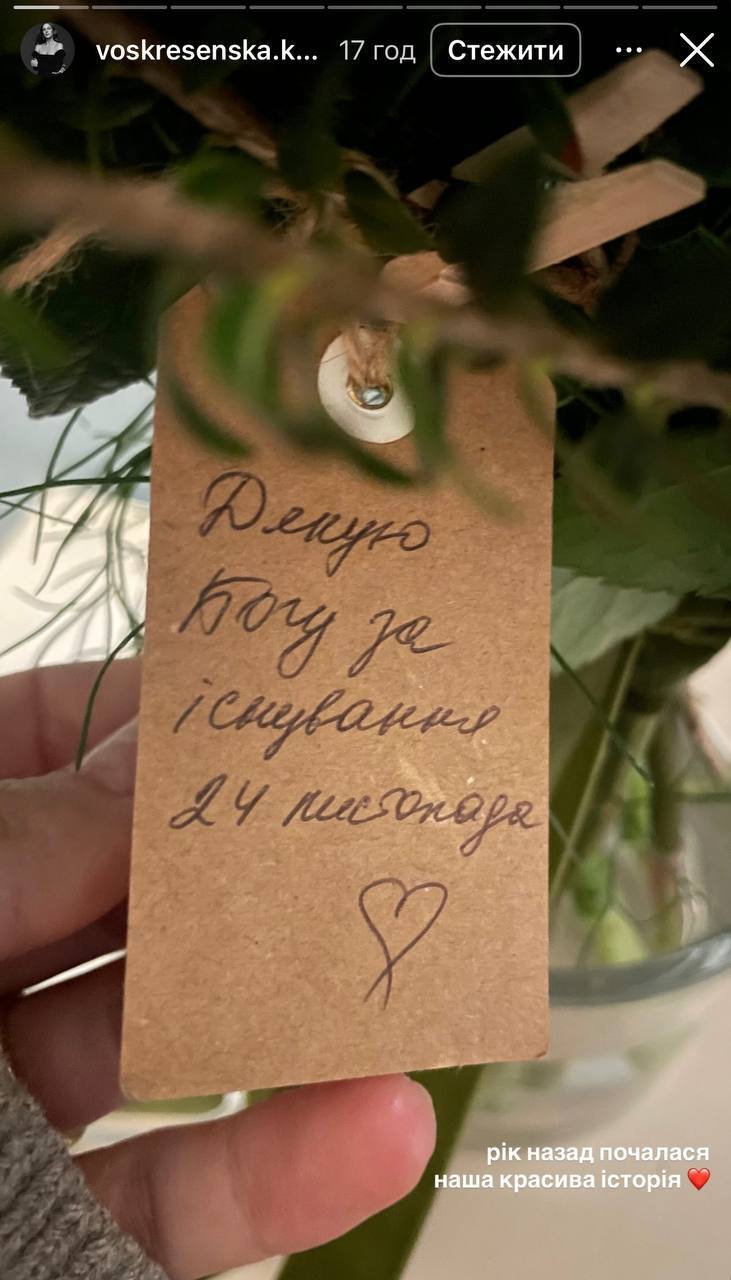 voskresenska.k... 17 год Стежити
Дякую
Богу за
існування
24 листопада
рік назад почалася
наша красива історія ❤️